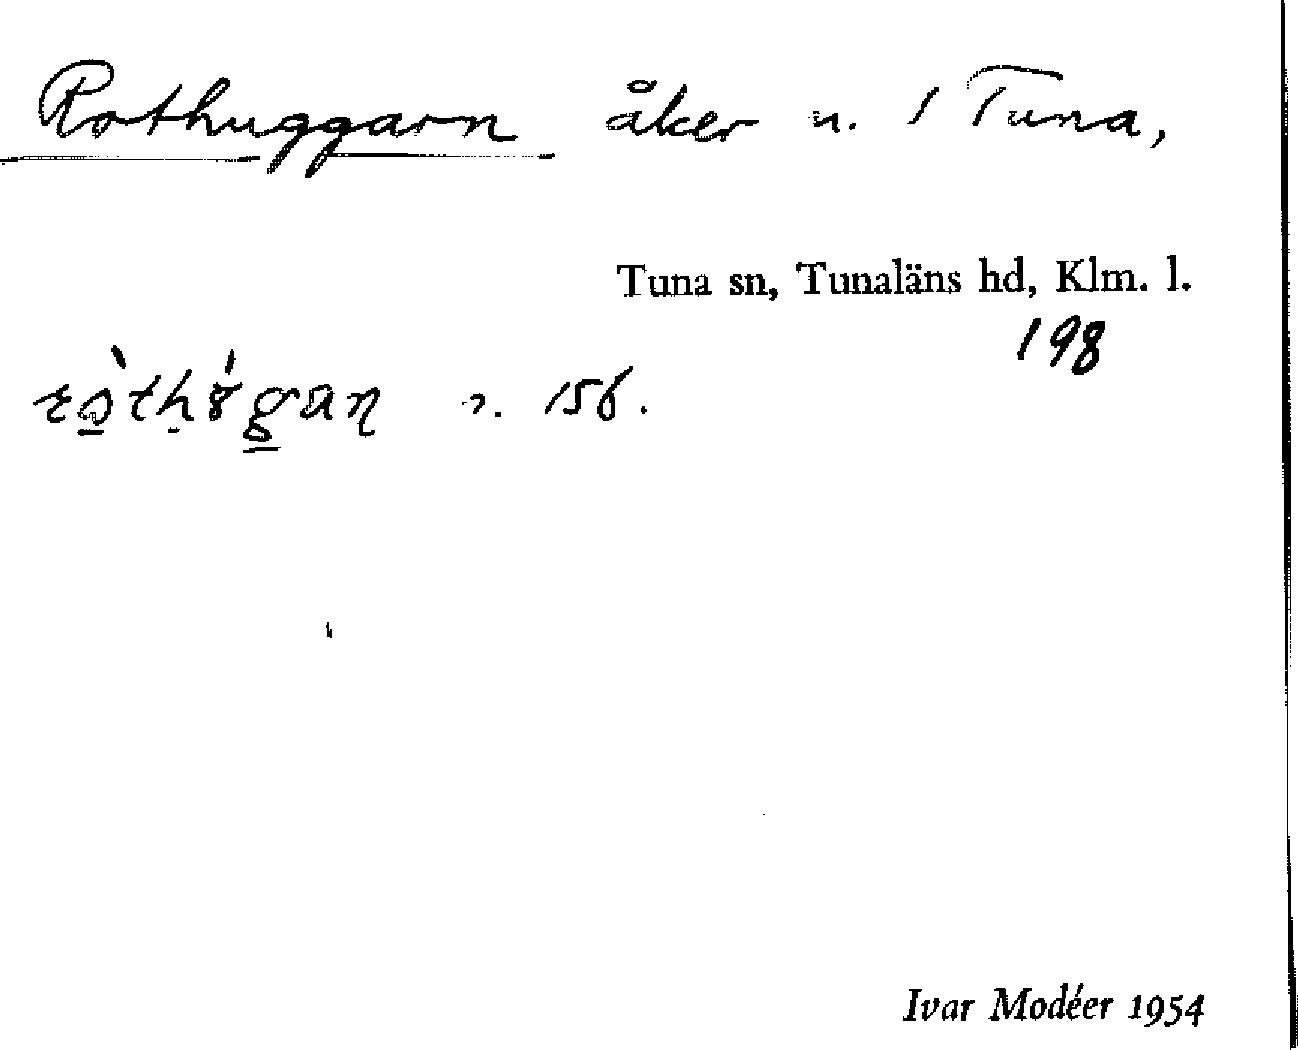 Rothuggarn åker n. 1 Tuna,
Tuna sn, Tunaläns hd, Klm. l.
198
n. 156.
Ivar Modéer 1954